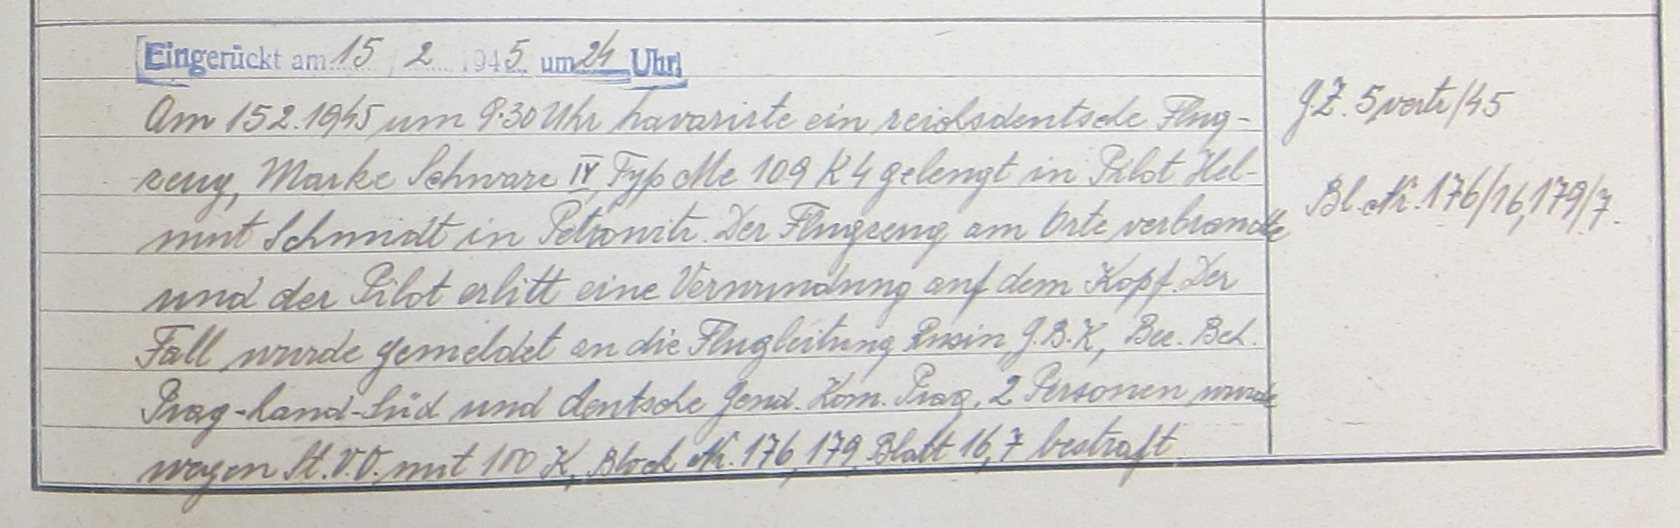 Eingerückt am 15 2 1945 um 24 Uhr
Am 15 2. 1945 um 9.30 Uhr havarirte ein reichsdentsche Flug-
zeug, Marke Schwarz IV, Typ Me 109 K4 gelengt in Pilot Hel-
mut Schmidt in Petrowitz. Der Flugzeug am Orte verbrandte
und der Pilot erlitt eine Verwundung auf dem Kopf. Der
Fall wurde gemeldet an die Flugleitung Rusin, G.B.K, Bez. Beh.
Prag-Land-Süd und deutsche Gend. Kom. Prag. 2 Personen wurde
wegen St.V.O. mit 100 K, Block Nr. 176, 179 Blatt 16, 7 bestraft
G.Z. 5 vertr/45
Bl. Nr. 176/16, 179/7.